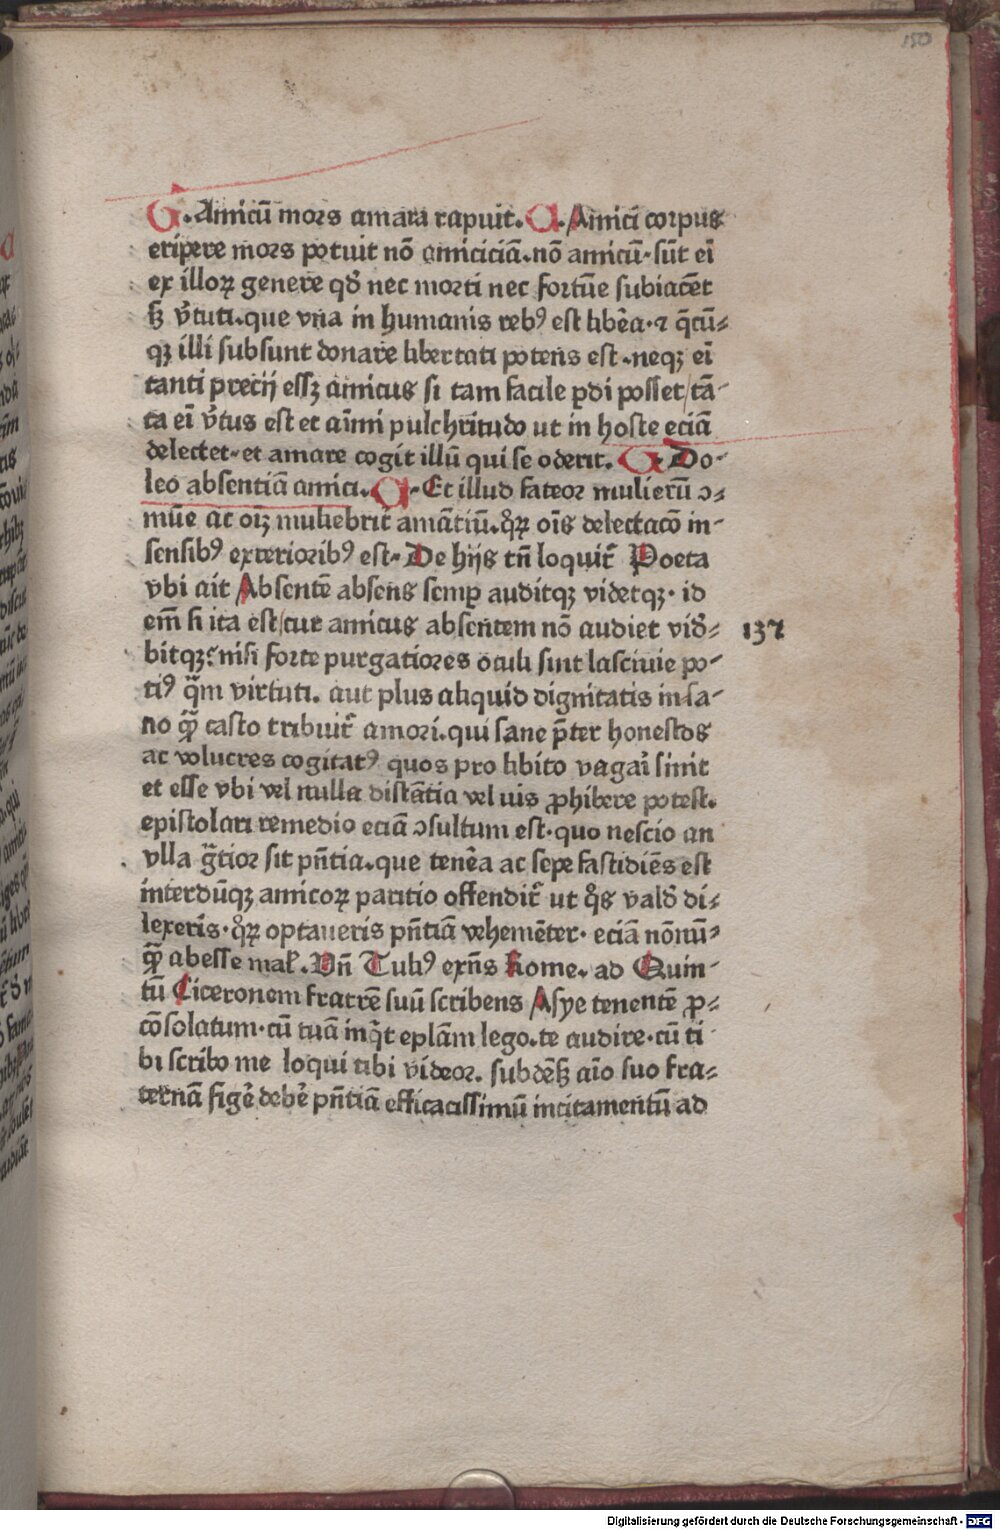 153
G. Amicū mors amara rapuit. A. Amici corpus
eripere mors potuit nō amiciciā. nō amicū. sūt eī
ex illoꝝ genere qđ nec morti nec fortūe subiacēt
sꝫ v̄tuti. que vna in humanis rebꝰ est libēa. ⁊ q̄cū⸗
qꝫ illi subsunt donare libertati potens est. neqꝫ eī
tanti precij essꝫ amicus si tam facile ꝑdi posset/tā⸗
ta eī v̄tus est et aīmi pulchritudo ut in hoste eciā
delectet. et amare cogit illū qui se oderit. G. Do⸗
leo absentiā amici. A. Et illud fateor mulierū ɔ⸗
mūe ac oīꝫ muliebrit̄ amātiū. qͦꝝ oīs delectacō in⸗
sensibꝰ exterioribꝰ est. De hijs tn̄ loquit̄ Poeta
vbi ait Absentē absens semꝑ auditqꝫ videtqꝫ. id
em̄ si ita est/cur amicus absentem nō audiet viđ⸗
137
bitqꝫ? nisi forte purgatiores oculi sint lasciuie po⸗
tiꝰ q̄m virtuti. aut plus aliquid dignitatis insa⸗
no qͣ̄ casto tribuit̄ amori. qui sane p̄ter honestos
ac volucres cogitatꝰ quos pro libito vagaī sinit
et esse vbi vel nulla distātia vel uis ꝓhibere potest.
epistolari remedio eciā ɔsultum est. quo nescio an
vlla gͣtior sit pn̄tia. que tenēa ac sepe fastidiēs est
interdūqꝫ amicoꝝ paritio offendit̄ ut qͦs valđ di⸗
lexeris. qͦꝝ optaueris pn̄tiā vehemēter. eciā nōnū⸗
qͣ̄ abesse mal̄. Vn̄ Tuliꝰ exn̄s Rome. ad Quin⸗
tū Ciceronem fratrē suū scribens Asye tenentē ꝓ⸗
cōsolatum. cū tuā inq̄t epl̄am lego. te audire. cū ti
bi scribo me loqui tibi videor. subdēsꝫ aīo suo fra⸗
ternā figē debē pn̄tiā efficacissimū incitamentū ad
Digitalisierung gefördert durch die Deutsche Forschungsgemeinschaft - DFG